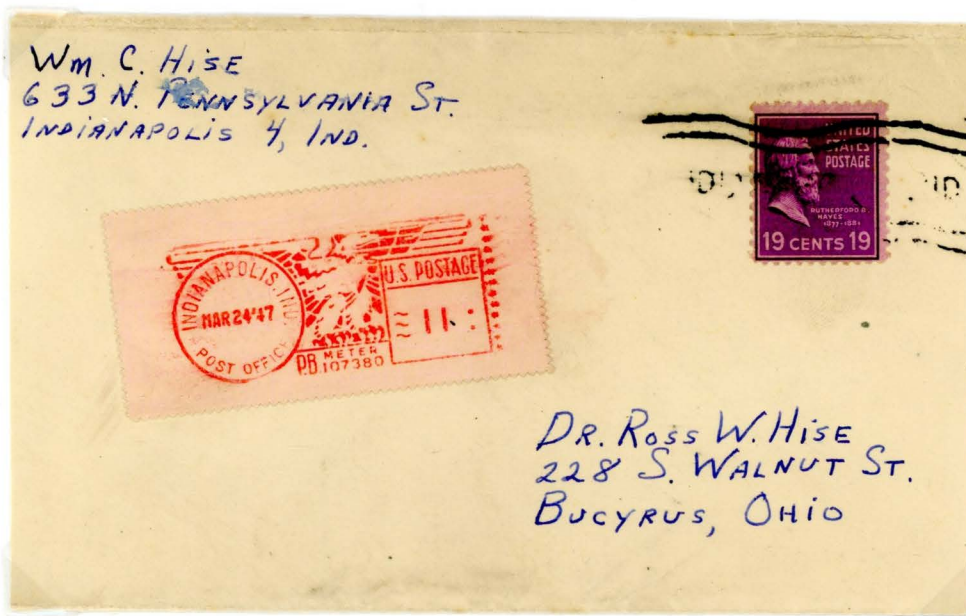 Wm. C. HISE
633 N. PENNSYLVANIA ST.
INDIANAPOLIS 4, IND.
UNITED
STATES
POSTAGE
RUTHERFORD B.
HAYES
1877-1881
19 CENTS 19
INDIANAPOLIS, IND.
MAR 24 '47
POST OFFICE
U.S. POSTAGE
11
P.B. METER
107380
DR. ROSS W. HISE
228 S. WALNUT ST.
BUCYRUS, OHIO